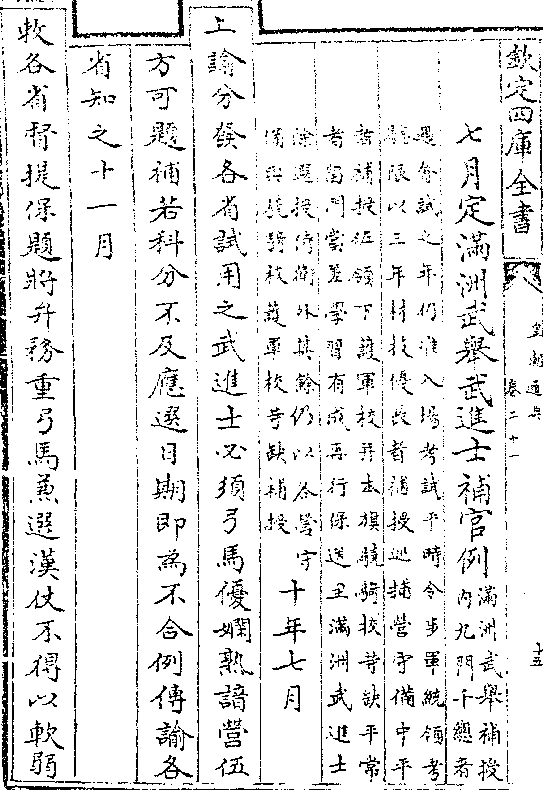 欽定四庫全書
皇朝通典
卷二十一
十五
七月定滿洲武舉武進士補官例滿洲武舉補授
内九門千總者
遇會試之年仍准入場考試平時令步軍統領考
驗限以三年材技優者補授巡捕營守備中平
者補授征領下護軍校并本旗驍騎校等缺平常
者留門當差學習有成再行保送至滿洲武進士
除選授侍衛外其餘仍以各營守
備與驍騎校護軍校等缺補授
十年七月
上諭分發各省試用之武進士必須弓馬優嫻熟諳營伍
方可題補若科分不及應選日期即為不合例傳諭各
省知之十一月
敕各省督提保題將弁務重弓馬兼選漢仗不得以軟弱